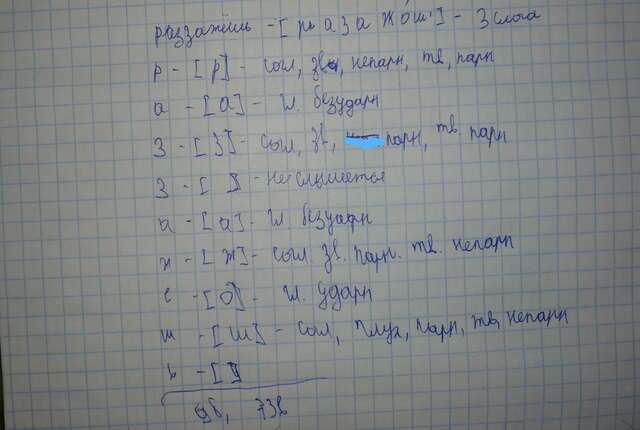 раззажёшь - [ р а з а ж о́ ш ] - 3 слога
р - [ р ] - согл, зв, непарн, тв, парн
а - [ а ] - гл. безударн
з - [ з ] - согл, зв, парн, тв. парн
з - [ ] - не слышется
а - [ а ] - гл. безударн
ж - [ ж ] - согл. зв. парн. тв. непарн
ё - [ о ] - гл. ударн
ш - [ ш ] - согл, глух, парн, тв, непарн
ь - [ ]
9б, 7зв